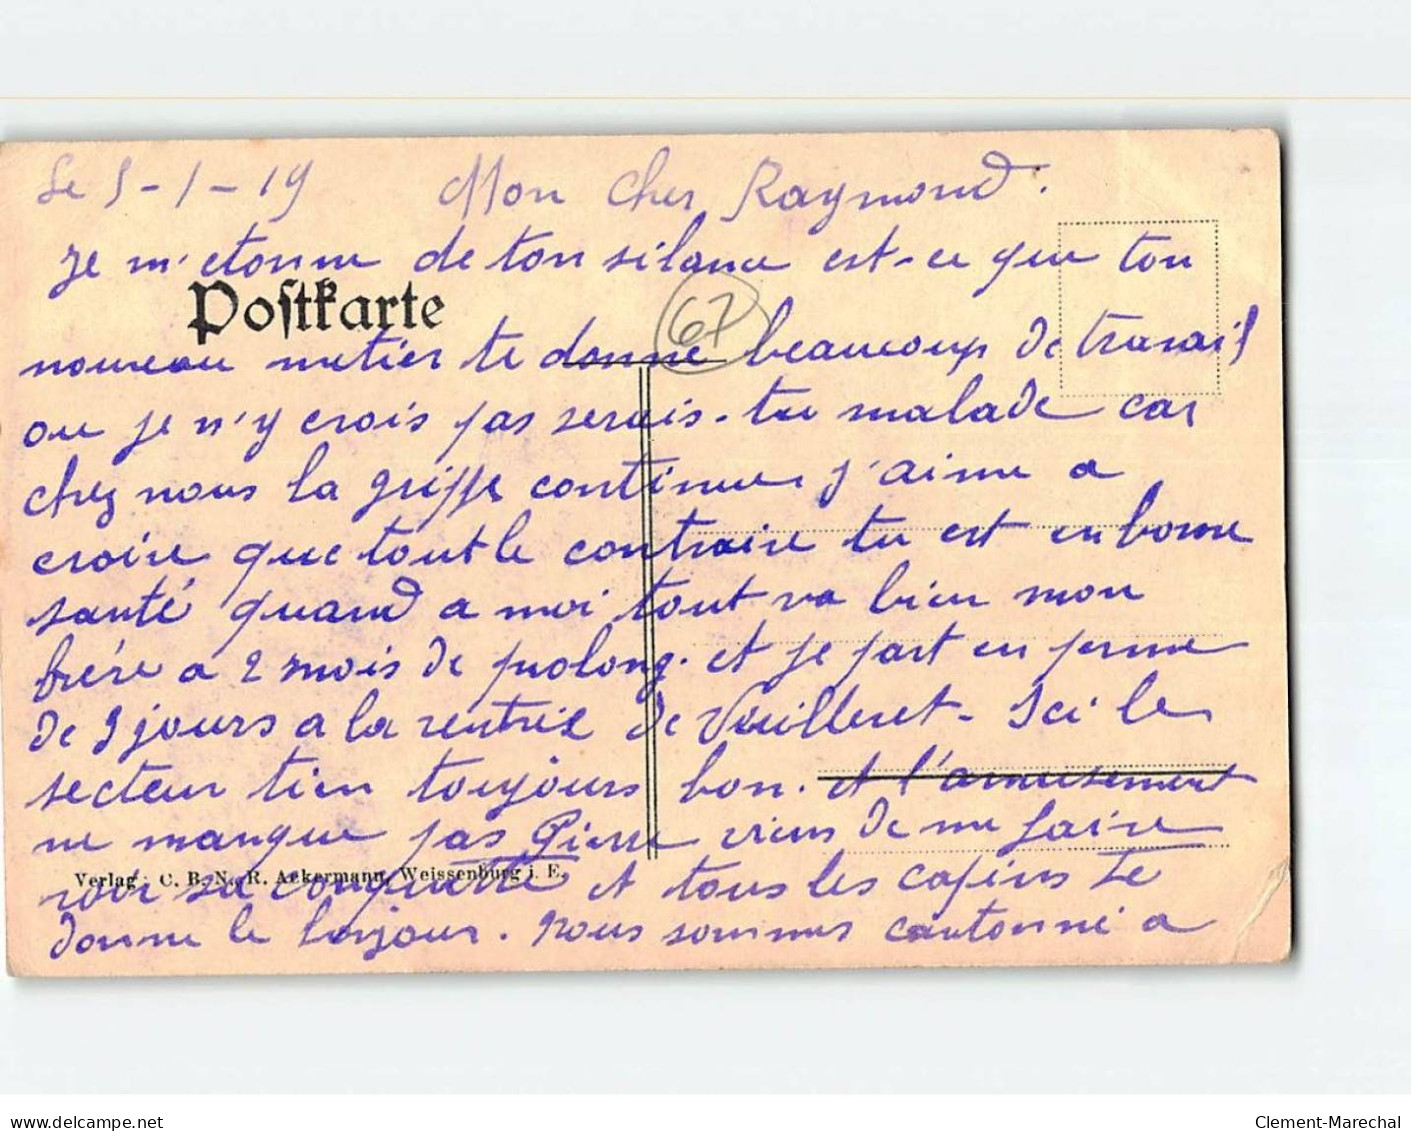 Le 5-1-19 Mon cher Raymond.
Je m'etonne de ton silance est-ce que ton
Postkarte
67
nouveau metier te donne beaucoup de travail
ou je n'y crois pas serais-tu malade car
chez nous la grippe continue j'aime a
croire que tout le contraire tu est en bonne
santé quand a moi tout va bien mon
frère a 2 mois de prolong. et je part en perme
de 9 jours a la rentrée de Vuilleret - Ici le
secteur tien toujours bon. et l'amusement
ne manque pas Pierre viens de me faire
voir sa conquette et tous les copins te
Verlag C. B. N. R. Ackermann, Weissenburg i. E.
donne le bonjour. Nous sommes cantonné a
delcampe.net
Clement-Marechal